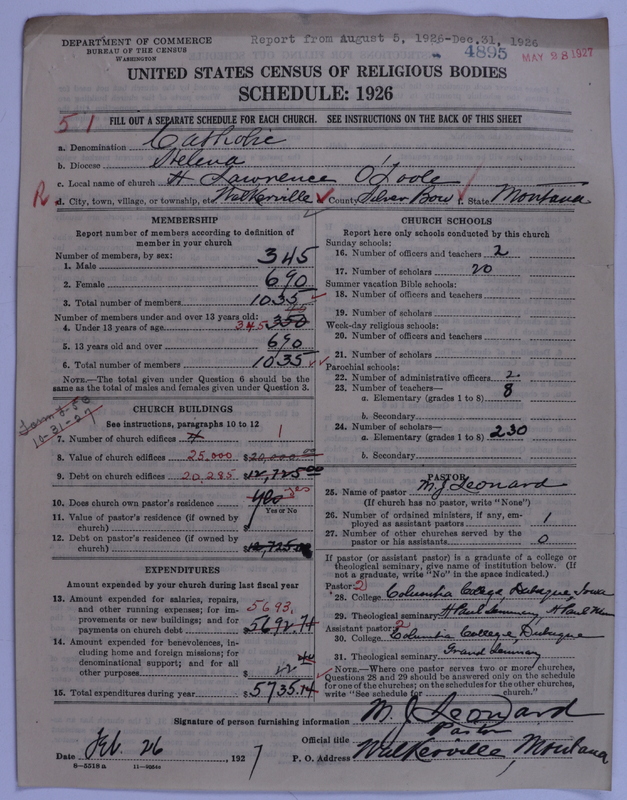 Report from August 5, 1926-Dec. 31, 1926
DEPARTMENT OF COMMERCE
BUREAU OF THE CENSUS
WASHINGTON
4895
MAY 28 1927
UNITED STATES CENSUS OF RELIGIOUS BODIES
SCHEDULE: 1926
51
FILL OUT A SEPARATE SCHEDULE FOR EACH CHURCH. SEE INSTRUCTIONS ON THE BACK OF THIS SHEET
a. Denomination Catholic
b. Diocese Helena
c. Local name of church St Lawrence O'Toole
R d. City, town, village, or township, etc. Walkerville County Silver Bow State Montana
MEMBERSHIP
Report number of members according to definition of
member in your church
Number of members, by sex:
1. Male 345
2. Female 690
3. Total number of members 1035
Number of members under and over 13 years old:
4. Under 13 years of age 345 350
5. 13 years old and over 690
6. Total number of members 1035
NOTE.—The total given under Question 6 should be the
same as the total of males and females given under Question 3.
10-31-27
CHURCH BUILDINGS
See instructions, paragraphs 10 to 12
7. Number of church edifices 1
8. Value of church edifices 25,000 $20,000.00
9. Debt on church edifices 20,285 $12,725.00
10. Does church own pastor's residence yes
Yes or No
11. Value of pastor's residence (if owned by
church) $
12. Debt on pastor's residence (if owned by
church) 12,725.00
EXPENDITURES
Amount expended by your church during last fiscal year
13. Amount expended for salaries, repairs,
and other running expenses; for im-
provements or new buildings; and for
payments on church debt 5693. $5692.74
14. Amount expended for benevolences, in-
cluding home and foreign missions; for
denominational support; and for all
other purposes $
15. Total expenditures during year $5735.14
CHURCH SCHOOLS
Report here only schools conducted by this church
Sunday schools:
16. Number of officers and teachers 2
17. Number of scholars 20
Summer vacation Bible schools:
18. Number of officers and teachers
19. Number of scholars
Week-day religious schools:
20. Number of officers and teachers
21. Number of scholars
Parochial schools:
22. Number of administrative officers 2
23. Number of teachers—
a. Elementary (grades 1 to 8) 8
b. Secondary
24. Number of scholars—
a. Elementary (grades 1 to 8) 230
b. Secondary
PASTOR
25. Name of pastor M. J. Leonard
(If church has no pastor, write "None")
26. Number of ordained ministers, if any, em-
ployed as assistant pastors 1
27. Number of other churches served by the
pastor or his assistants 0
If pastor (or assistant pastor) is a graduate of a college or
theological seminary, give name of institution below. (If
not a graduate, write "No" in the space indicated.)
Pastor: 2
28. College Columbia College Dubuque, Iowa
29. Theological seminary St Paul Seminary St Paul Minn
Assistant pastor: 2
30. College Columbia College, Dubuque
31. Theological seminary Grand Seminary
NOTE.—Where one pastor serves two or more churches,
Questions 28 and 29 should be answered only on the schedule
for one of the churches; on the schedules for the other churches,
write "See schedule for church."
Signature of person furnishing information M. J. Leonard
Official title Pastor
Date Feb. 26, 1927 P. O. Address Walkerville, Montana
8-5318a